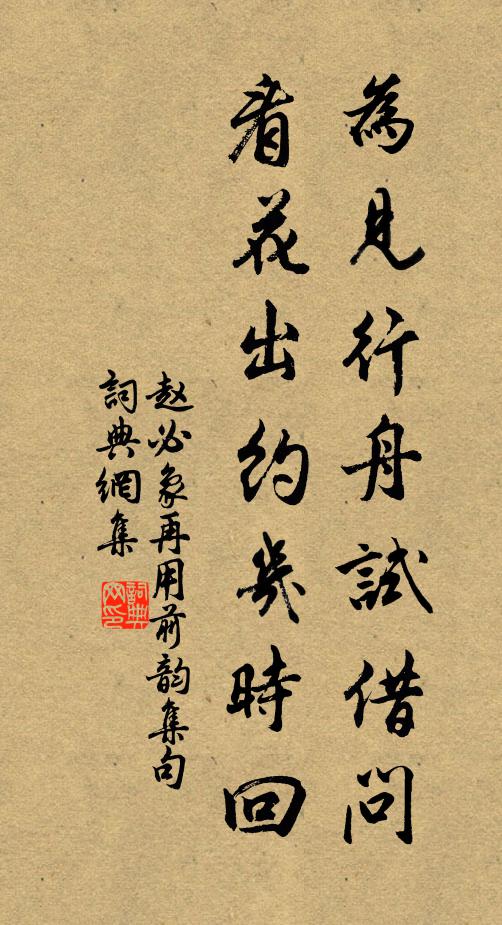 為見行舟試借問
看花出約幾時回
赵必象再用前韵集句
詞典網集
詞典
网印